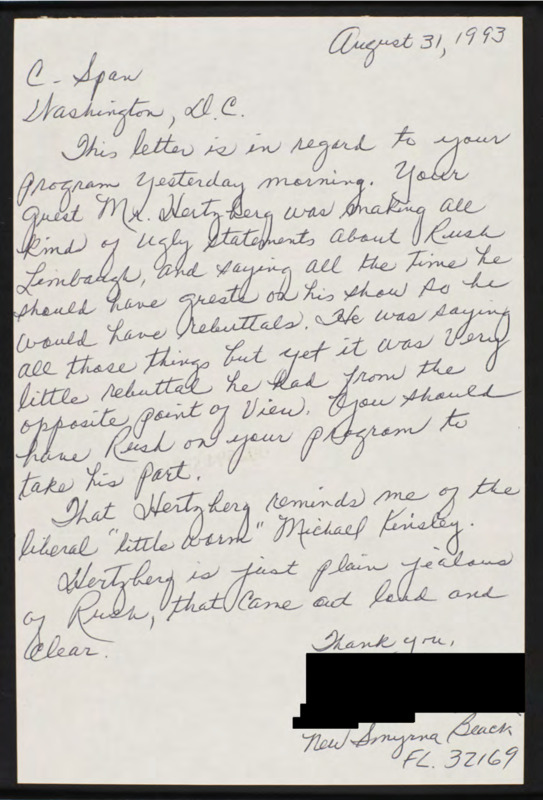 August 31, 1993
C-Span
Washington, D.C.
This letter is in regard to your
program yesterday morning. Your
guest Mr. Hertzberg was making all
kind of ugly statements about Rush
Limbaugh, and saying all the time he
should have grests on his show so he
would have rebuttals. He was saying
all those things but yet it was very
little rebuttal he had from the
opposite point of view. You should
have Rush on your program to
take his part.
That Hertzberg reminds me of the
liberal "little worm" Michael Kinsley.
Hertzberg is just plain jealous
of Rush, that came out loud and
clear.
Thank you,
New Smyrna Beach
FL. 32169